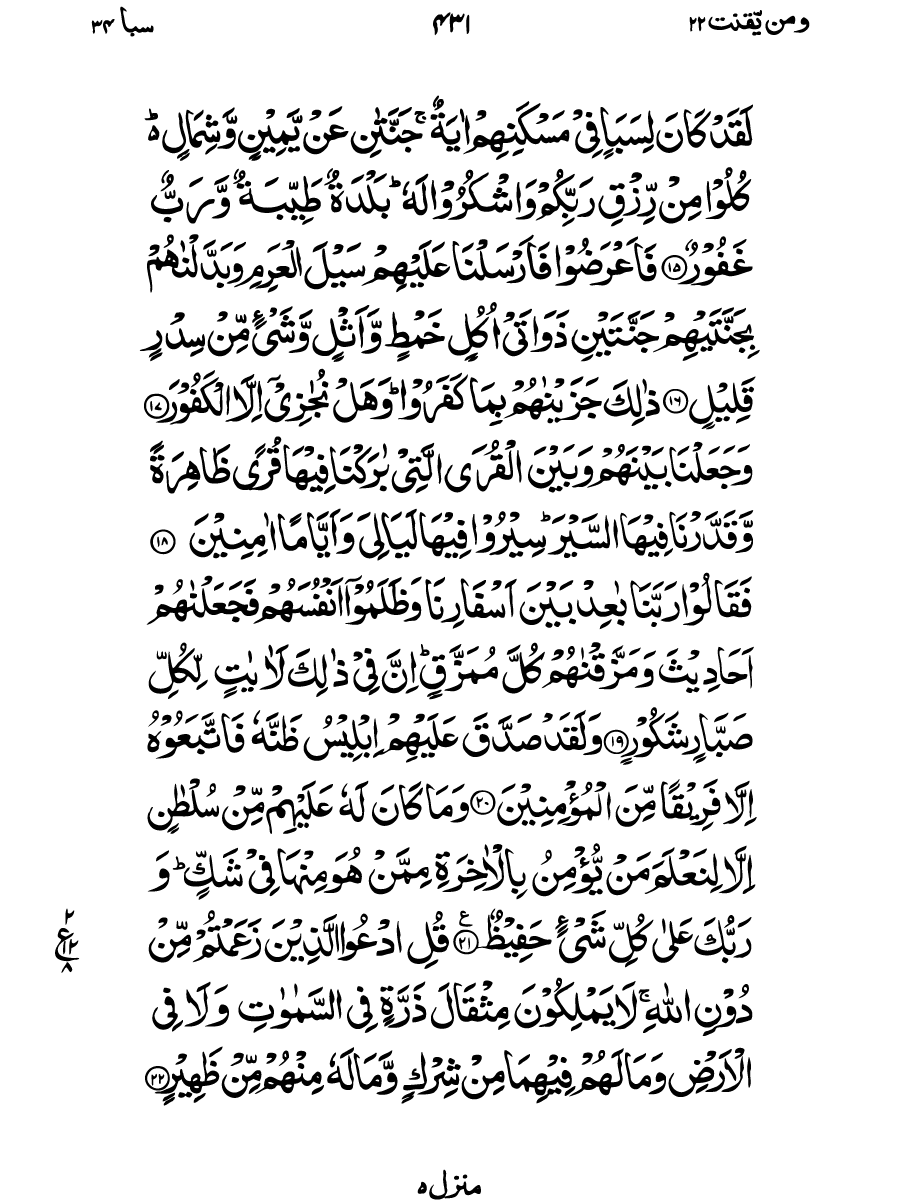 ومن یّقنت ٢٢ ٤٣١ سبا ٣٤
لَقَدْ كَانَ لِسَبَاٍ فِیْ مَسْكَنِهِمْ اٰیَةٌ ۚ جَنَّتٰنِ عَنْ یَّمِیْنٍ وَّشِمَالٍ ؕ۬
كُلُوْا مِنْ رِّزْقِ رَبِّكُمْ وَاشْكُرُوْا لَهٗ ؕ بَلْدَةٌ طَیِّبَةٌ وَّرَبٌّ
غَفُوْرٌ ﴿١٥﴾ فَاَعْرَضُوْا فَاَرْسَلْنَا عَلَیْهِمْ سَیْلَ الْعَرِمِ وَبَدَّلْنٰهُمْ
بِجَنَّتَیْهِمْ جَنَّتَیْنِ ذَوَاتَیْ اُكُلٍ خَمْطٍ وَّاَثْلٍ وَّشَیْءٍ مِّنْ سِدْرٍ
قَلِیْلٍ ﴿١٦﴾ ذٰلِكَ جَزَیْنٰهُمْ بِمَا كَفَرُوْا ؕ وَهَلْ نُجٰزِیْۤ اِلَّا الْكَفُوْرَ ﴿١٧﴾
وَجَعَلْنَا بَیْنَهُمْ وَبَیْنَ الْقُرَی الَّتِیْ بٰرَكْنَا فِیْهَا قُرًی ظَاهِرَةً
وَّقَدَّرْنَا فِیْهَا السَّیْرَ ؕ سِیْرُوْا فِیْهَا لَیَالِیَ وَاَیَّامًا اٰمِنِیْنَ ﴿١٨﴾
فَقَالُوْا رَبَّنَا بٰعِدْ بَیْنَ اَسْفَارِنَا وَظَلَمُوْۤا اَنْفُسَهُمْ فَجَعَلْنٰهُمْ
اَحَادِیْثَ وَمَزَّقْنٰهُمْ كُلَّ مُمَزَّقٍ ؕ اِنَّ فِیْ ذٰلِكَ لَاٰیٰتٍ لِّكُلِّ
صَبَّارٍ شَكُوْرٍ ﴿١٩﴾ وَلَقَدْ صَدَّقَ عَلَیْهِمْ اِبْلِیْسُ ظَنَّهٗ فَاتَّبَعُوْهُ
اِلَّا فَرِیْقًا مِّنَ الْمُؤْمِنِیْنَ ﴿٢٠﴾ وَمَا كَانَ لَهٗ عَلَیْهِمْ مِّنْ سُلْطٰنٍ
اِلَّا لِنَعْلَمَ مَنْ یُّؤْمِنُ بِالْاٰخِرَةِ مِمَّنْ هُوَ مِنْهَا فِیْ شَكٍّ ؕ وَ
رَبُّكَ عَلٰی كُلِّ شَیْءٍ حَفِیْظٌ ﴿٢١﴾ ع قُلِ ادْعُوا الَّذِیْنَ زَعَمْتُمْ مِّنْ
٢
ع ١٢
٨
دُوْنِ اللّٰهِ ۚ لَا یَمْلِكُوْنَ مِثْقَالَ ذَرَّةٍ فِی السَّمٰوٰتِ وَلَا فِی
الْاَرْضِ وَمَا لَهُمْ فِیْهِمَا مِنْ شِرْكٍ وَّمَا لَهٗ مِنْهُمْ مِّنْ ظَهِیْرٍ ﴿٢٢﴾
منزل ٥